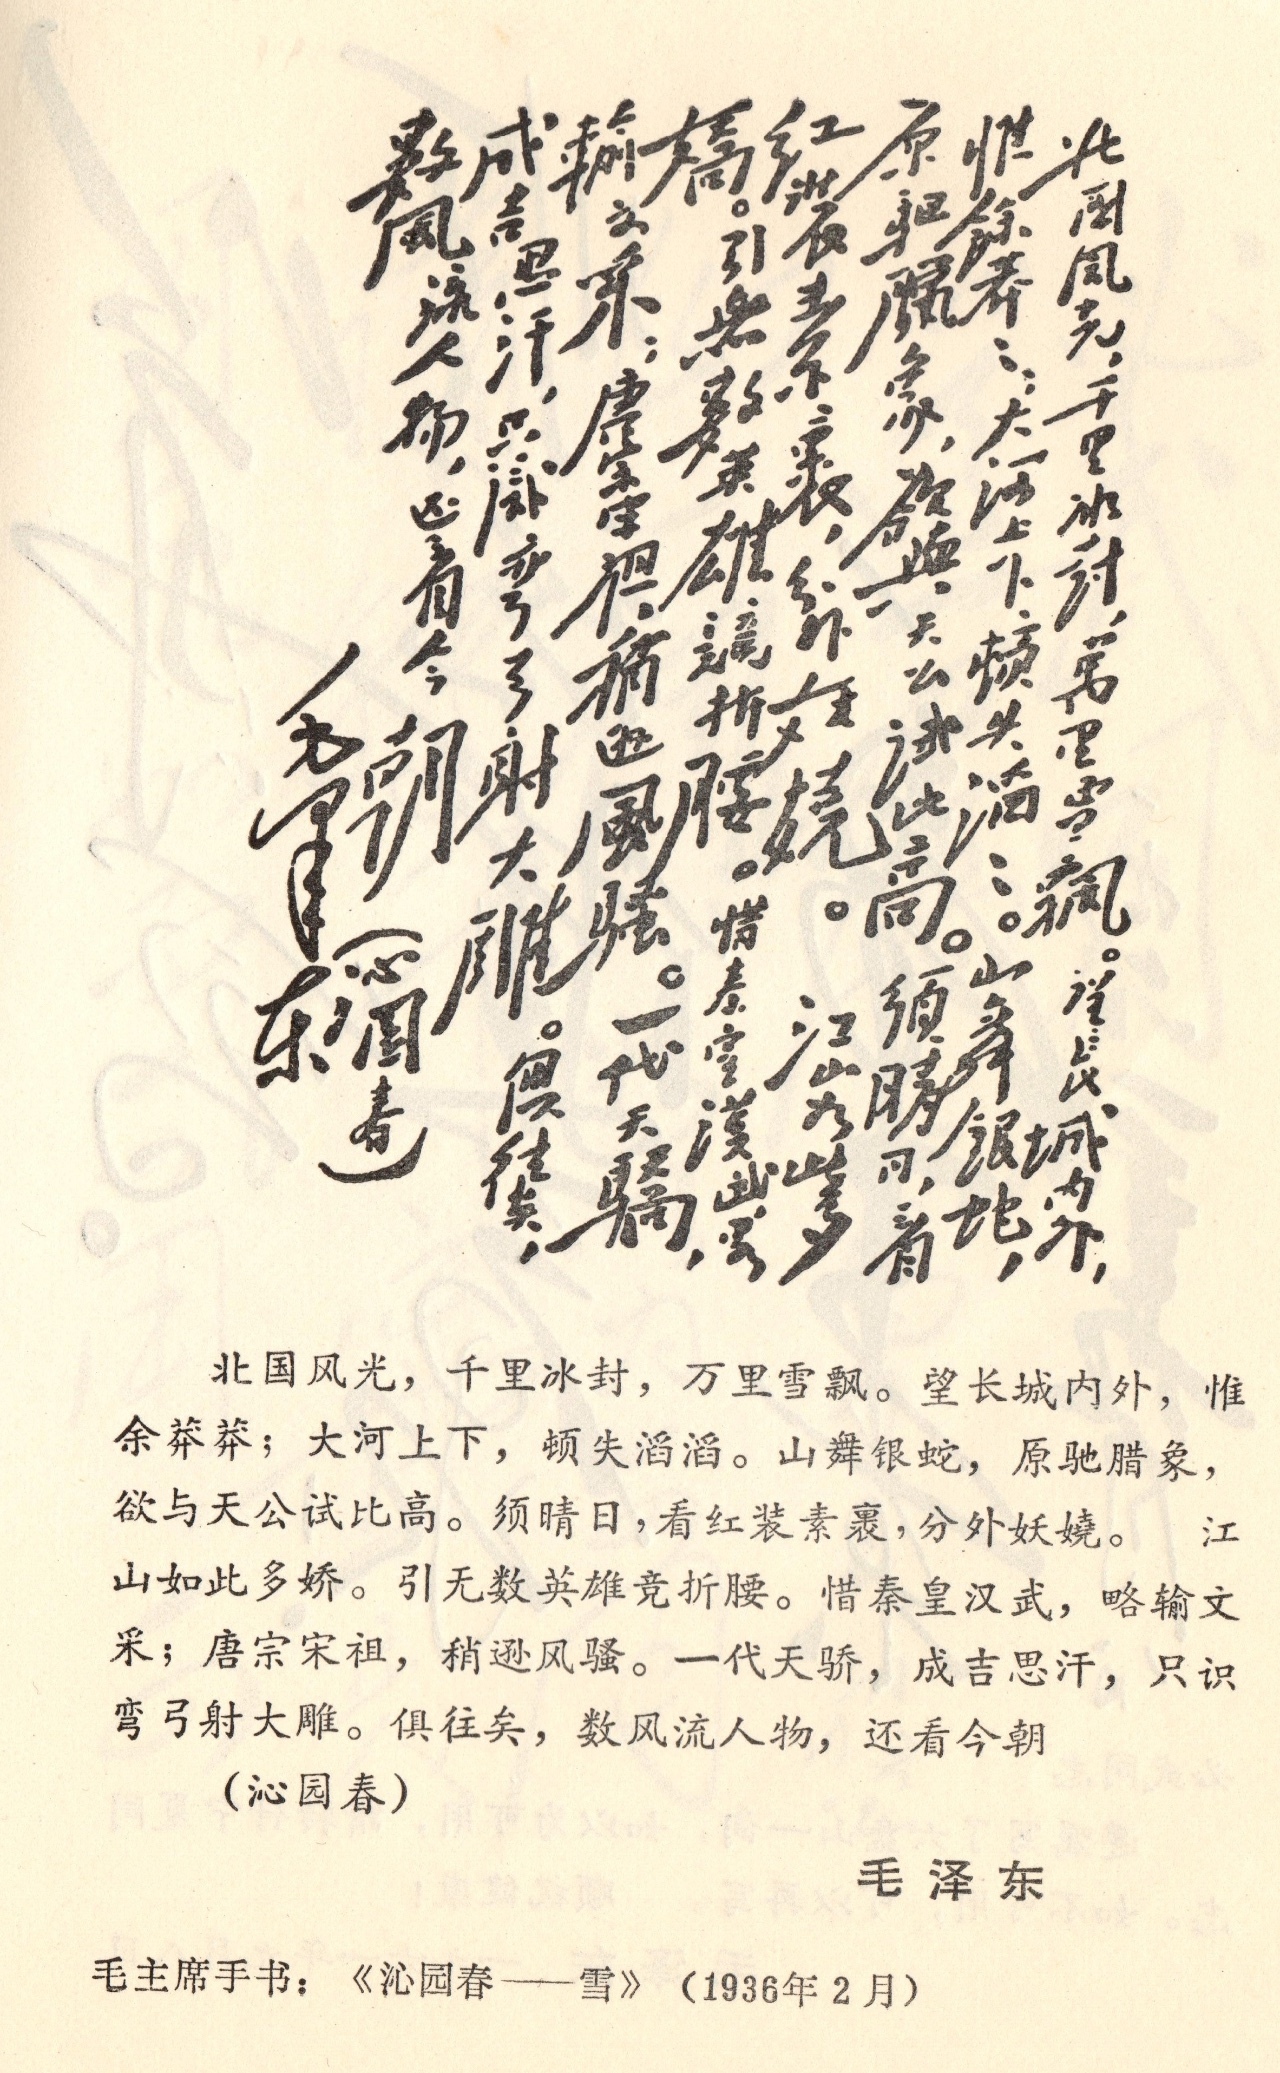 北國風光，千里冰封，萬里雪飄。望長城内外，
惟餘莽〻；大河上下，頓失滔〻。山舞銀蛇，
原馳臘象，欲與天公試比高。須晴日，看
红裝素裹，分外妖嬈。 江山如此多
嬌。引無數英雄競折腰。惜秦皇漢武，略
輸文采；唐宗宋祖，稍遜風騷。一代天驕，
成吉思汗，只識彎弓射大雕。俱往矣，
數風流人物，还看今
朝 （沁園春）
毛澤東
北国风光，千里冰封，万里雪飘。望长城内外，惟
余莽莽；大河上下，顿失滔滔。山舞银蛇，原驰腊象，
欲与天公试比高。须晴日，看红装素裹，分外妖娆。 江
山如此多娇。引无数英雄竞折腰。惜秦皇汉武，略输文
采；唐宗宋祖，稍逊风骚。一代天骄，成吉思汗，只识
弯弓射大雕。俱往矣，数风流人物，还看今朝
（沁园春）
毛泽东
毛主席手书：《沁园春——雪》（1936年2月）